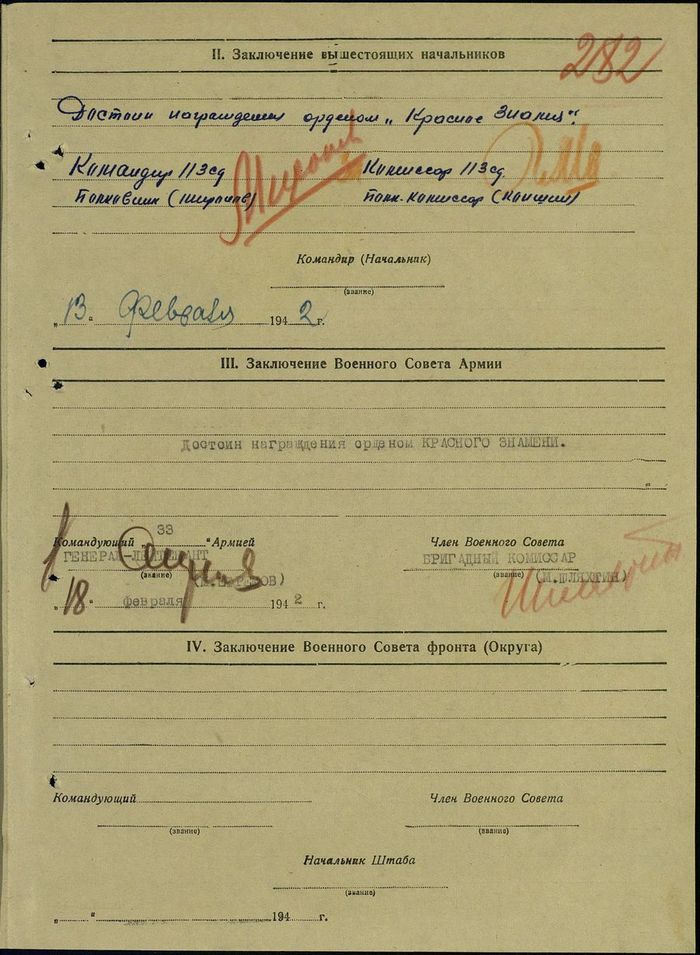 282
II. Заключение вышестоящих начальников
Достоин награждения орденом „Красное Знамя".
Командир 113сд Комиссар 113сд
Полковник (Миронов) Полк. Комиссар
Командир (Начальник)
(звание)
„13" Февраля 1942 г.
III. Заключение Военного Совета Армии
Достоин награждения орденом КРАСНОГО ЗНАМЕНИ.
Командующий „33" Армией Член Военного Совета
ГЕНЕРАЛ-ЛЕЙТЕНАНТ БРИГАДНЫЙ КОМИССАР
(звание) (звание) (М.ШЛЯХТИН)
„18" февраля 1942 г.
IV. Заключение Военного Совета фронта (Округа)
Командующий Член Военного Совета
(звание) (звание)
Начальник Штаба
(звание)
„ " 194 г.